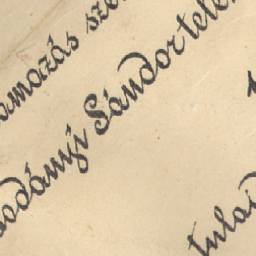 amazás sze
odányi Sándor tele
tulajd